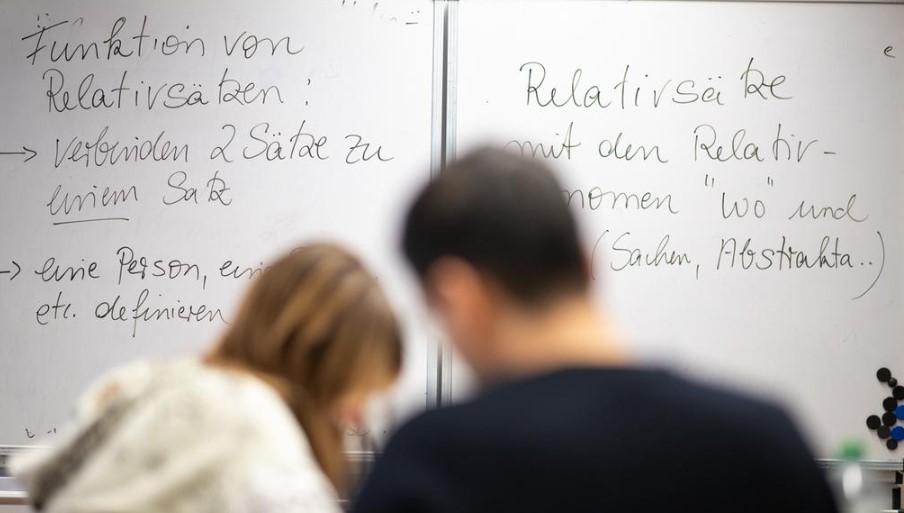 Funktion von
Relativsätzen :
→ verbinden 2 Sätze zu
einem Satz
→ eine Person,
etc. definieren
Relativsätze
mit den Relativ-
nomen "wo" und
(Sachen, Abstrakta..)
e